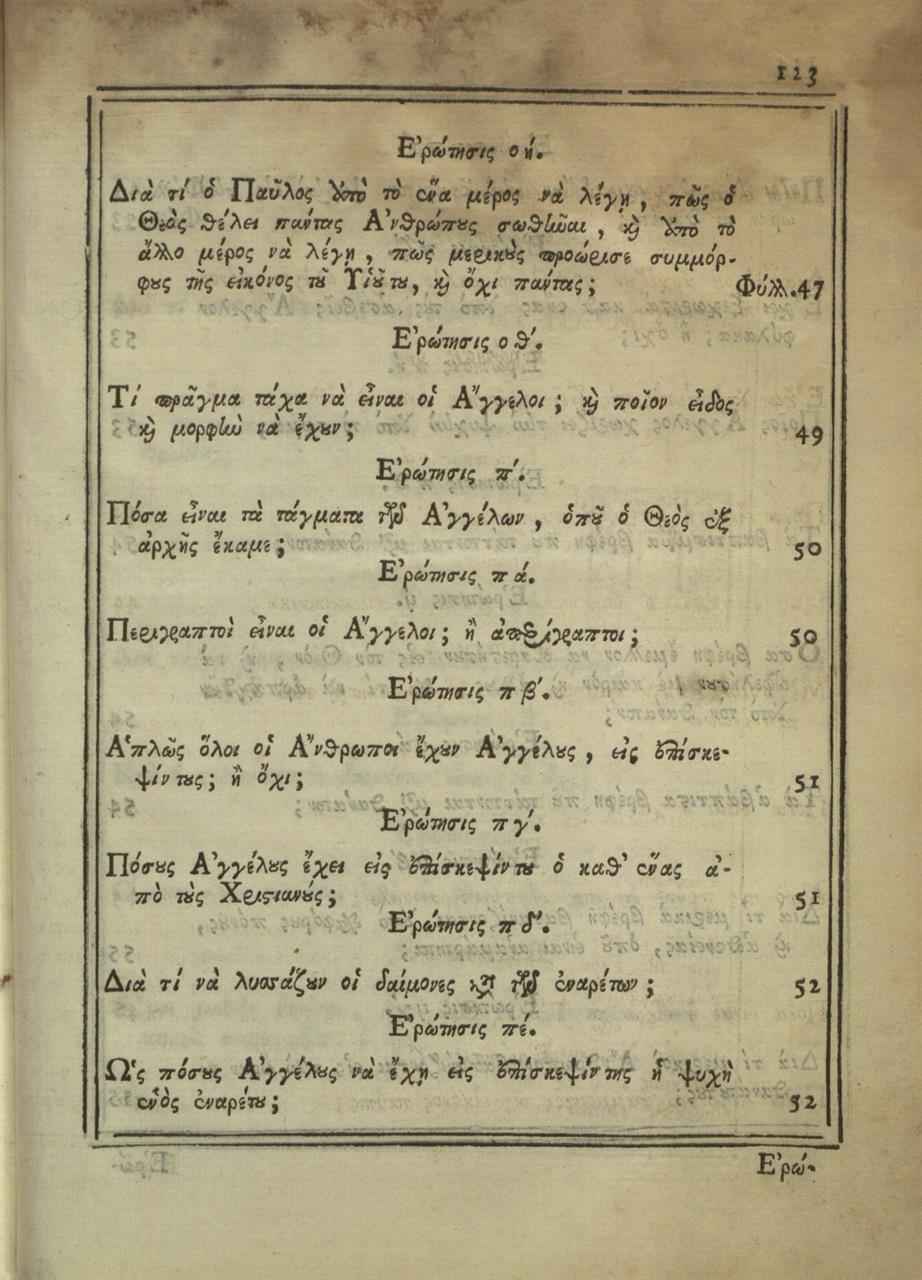 123
Ἐρώτησις οή.
Διὰ τί ὁ Παῦλος ἀπὸ τὸ ἕνα μέρος νὰ λέγῃ, πῶς ὁ
Θεὸς θέλει πάντας Ἀνθρώπους σωθῆναι, καὶ ἀπὸ τὸ
ἄλλο μέρος νὰ λέγῃ, πῶς μερικοὺς προώρισε συμμόρ-
φους τῆς εἰκόνος τοῦ Υἱοῦ του, καὶ ὄχι πάντας; Φύλλ. 47
Ἐρώτησις οθ΄.
Τί πρᾶγμα τάχα νὰ εἶναι οἱ Ἄγγελοι; καὶ ποῖον εἶδος
καὶ μορφὴν νὰ ἔχουν; 49
Ἐρώτησις π΄.
Πόσα εἶναι τὰ τάγματα τῶν Ἀγγέλων, ὁποῦ ὁ Θεὸς ἐξ
ἀρχῆς ἔκαμε; 50
Ἐρώτησις πά.
Περιγραπτοὶ εἶναι οἱ Ἄγγελοι; ἢ ἀπερίγραπτοι; 50
Ἐρώτησις πβ΄.
Ἁπλῶς ὅλοι οἱ Ἄνθρωποι ἔχουν Ἀγγέλους, εἰς ἐπίσκε-
ψίν τους; ἢ ὄχι; 51
Ἐρώτησις πγ΄.
Πόσους Ἀγγέλους ἔχει εἰς ἐπίσκεψίν του ὁ καθ' ἕνας ἀ-
πὸ τοὺς Χριστιανούς; 51
Ἐρώτησις πδ΄.
Διὰ τί νὰ λυσσάζουν οἱ δαίμονες κατὰ τῶν ἐναρέτων; 52
Ἐρώτησις πέ.
Ὡς πόσους Ἀγγέλους νὰ ἔχῃ εἰς ἐπίσκεψίν της ἡ ψυχὴ
ἑνὸς ἐναρέτου; 52
Ἐρώ-